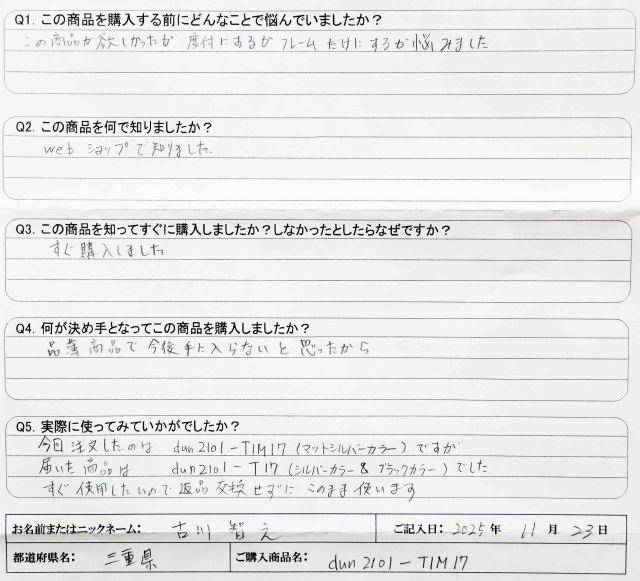 Q1. この商品を購入する前にどんなことで悩んでいましたか？
この商品が欲しかったが 度付にするか フレーム だけにするか悩みました
Q2. この商品を何で知りましたか？
web ショップで知りました.
Q3. この商品を知ってすぐに購入しましたか？しなかったとしたらなぜですか？
すぐ購入しました
Q4. 何が決め手となってこの商品を購入しましたか？
品薄商品で今後手に入らないと思ったから
Q5. 実際に使ってみていかがでしたか？
今回注文したのは dun2101-T1M17 (マットシルバーカラー) ですが
届いた商品は dun2101-T17 (シルバーカラー & ブラックカラー) でした.
すぐ使用したいので返品交換せずに このまま使います
お名前またはニックネーム: 古川 智 ご記入日: 2025年 11月 23日
都道府県名: 三重県 ご購入商品名: dun2101-T1M17